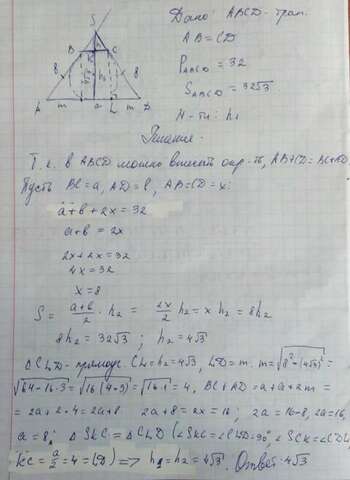 S
B
C
8
8
h₂
A
m
a
L
m
D
Дано: ABCD - трап.
AB = CD
P ABCD = 32
S ABCD = 32√3
Н-ти: h₁
Решение.
Т.к. в ABCD можно вписать окр-ть, AB+CD = BC+AD
Пусть BC = a, AD = b, AB = CD = x:
a + b + 2x = 32
a + b = 2x
2x + 2x = 32
4x = 32
x = 8
S = (a+b)/2 · h₂ = 2x/2 · h₂ = x h₂ = 8h₂
8h₂ = 32√3 ; h₂ = 4√3
△CLD - прямоуг. CL = h₂ = 4√3, LD = m. m = √(8² - (4√3)²) =
= √(64 - 16·3) = √(16(4-3)) = √(16·1) = 4. BC + AD = a + a + 2m =
= 2a + 2·4 = 2a + 8. 2a + 8 = 2x = 16; 2a = 16 - 8, 2a = 16,
a = 8; △SKC = △CLD (∠SKC = ∠CLD = 90°, ∠SCK = ∠CDL,
KC = a/2 = 4 = LD) => h₁ = h₂ = 4√3. Ответ: 4√3